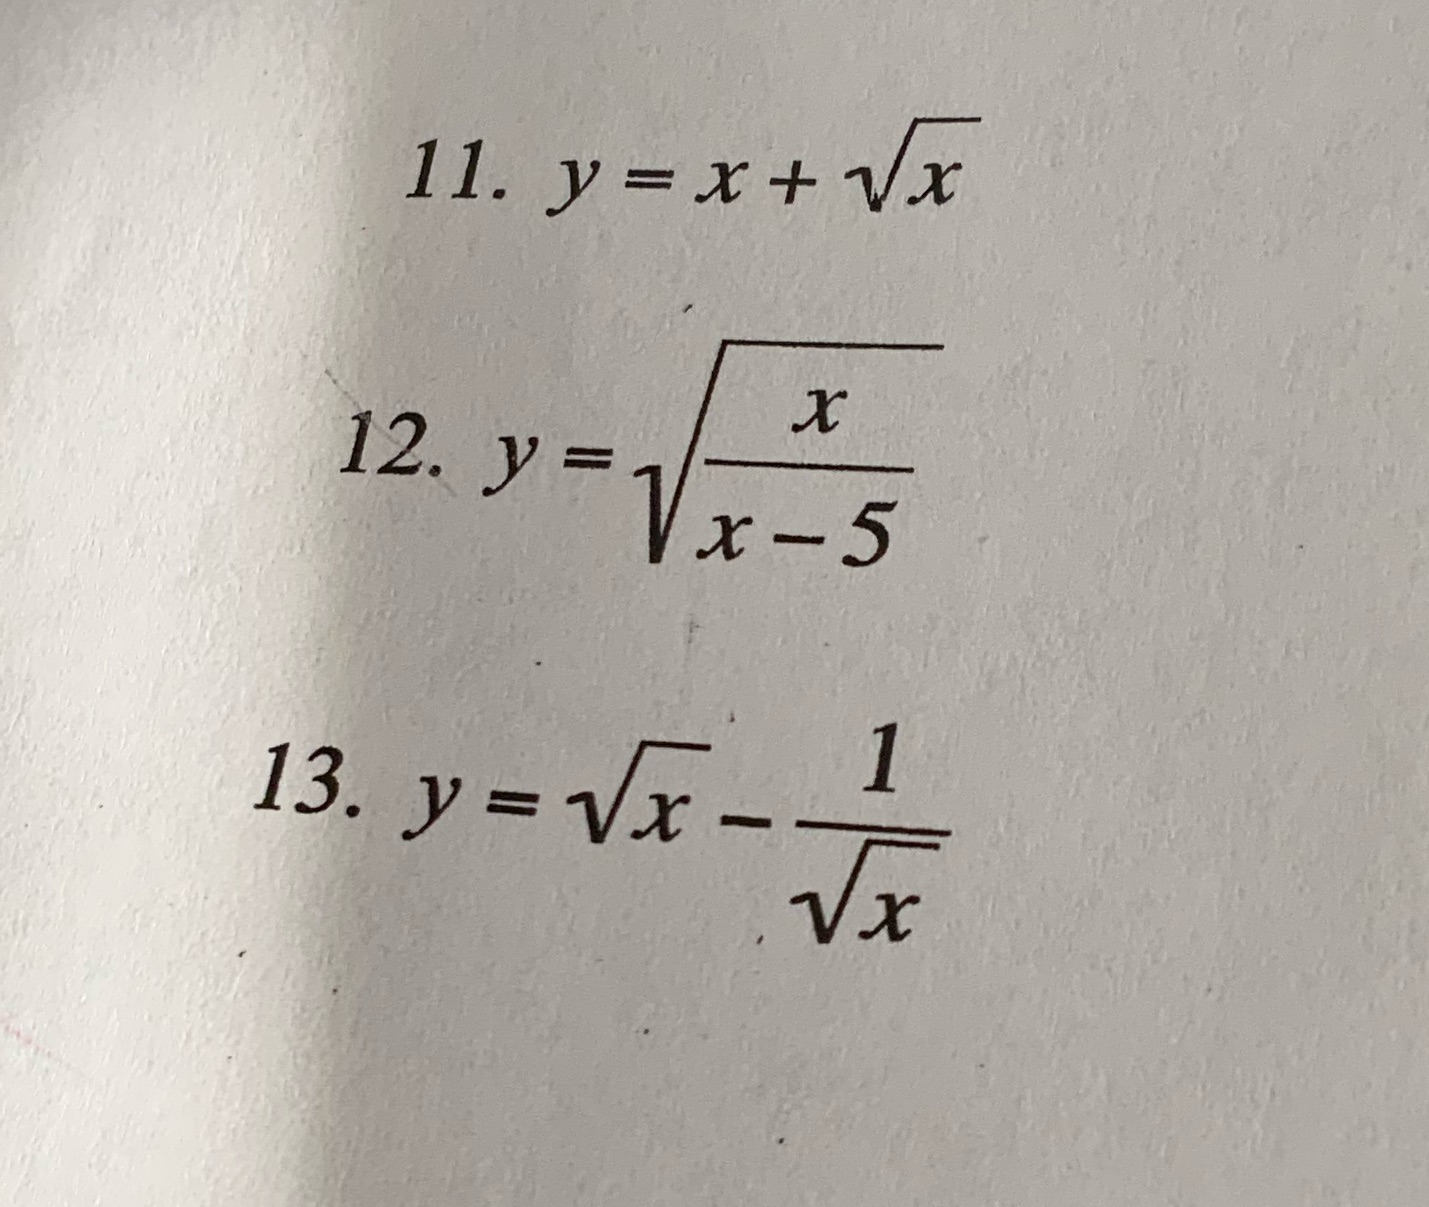 11. y = x + √x
12. y = √(x/(x – 5))
13. y = √x – 1/√x